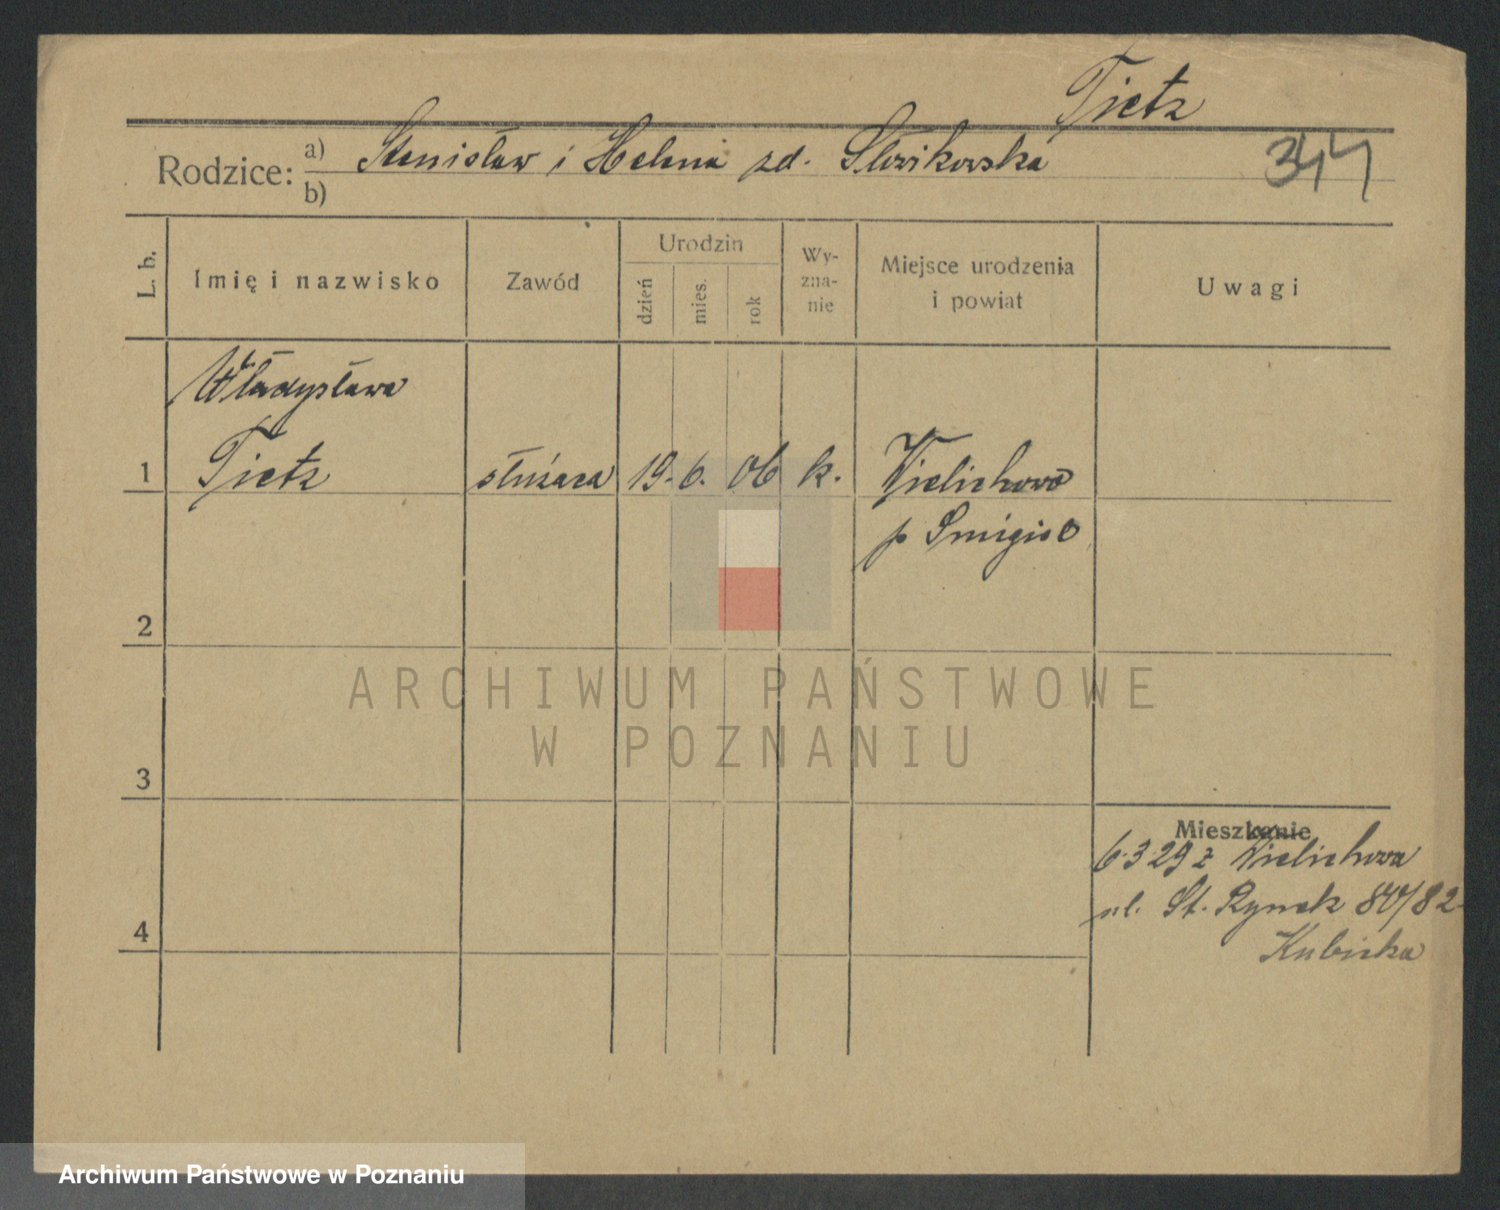 Tietz
Rodzice: a) Stanisław i Helena zd. Słowikowska
b)
344
L. b. Imię i nazwisko Zawód Urodzin dzień mies. rok Wy-zna-nie Miejsce urodzenia i powiat Uwagi
Władysława
1 Tietz służąca 19. 6. 06 k. Wielichowo
p Smigiel
2
3
Mieszkanie
6.3.29 z Wielichowa
ul. St. Rynek 80/82
4
Kubicka
ARCHIWUM PAŃSTWOWE
W POZNANIU
Archiwum Państwowe w Poznaniu